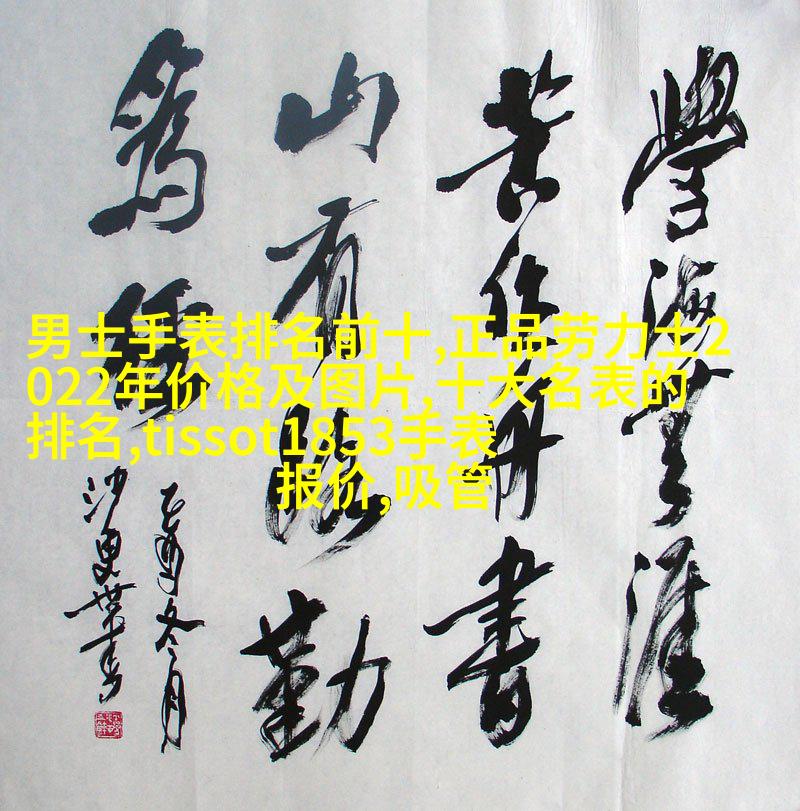 男士手表排名前十,正品劳力士2
022年价格及图片,十大名表的
排名,tissot1853手表
报价,吸管
學海無涯
苦作舟書
山有路勤
為徑
乙酉冬月